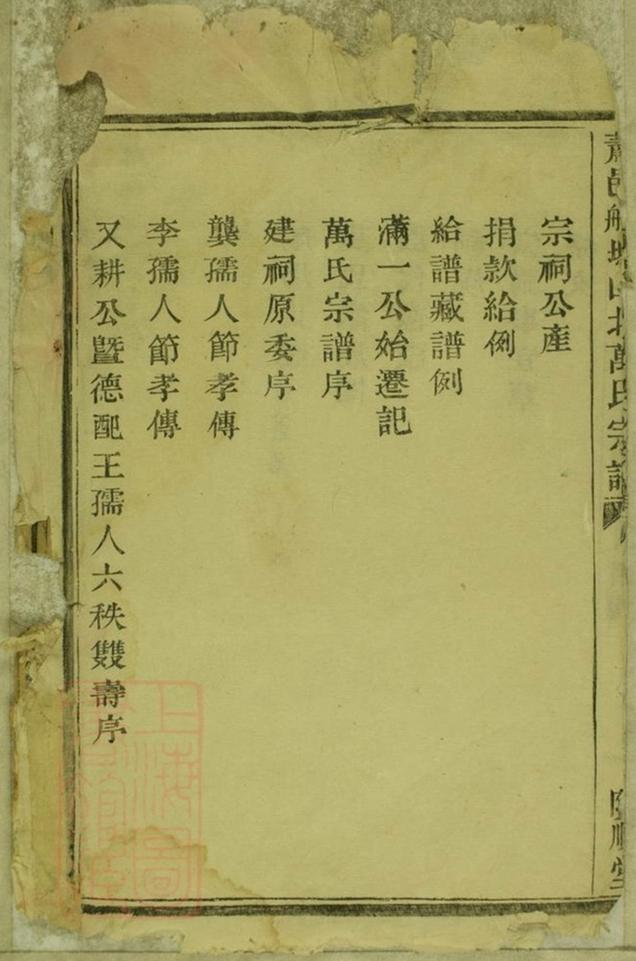 宗祠公產
捐款給例
給譜藏譜例
滿一公始遷記
萬氏宗譜序
建祠原委序
龔孺人節孝傳
李孺人節孝傳
又耕公暨德配王孺人六秩雙壽序
萬氏宗譜
順堂
上海圖